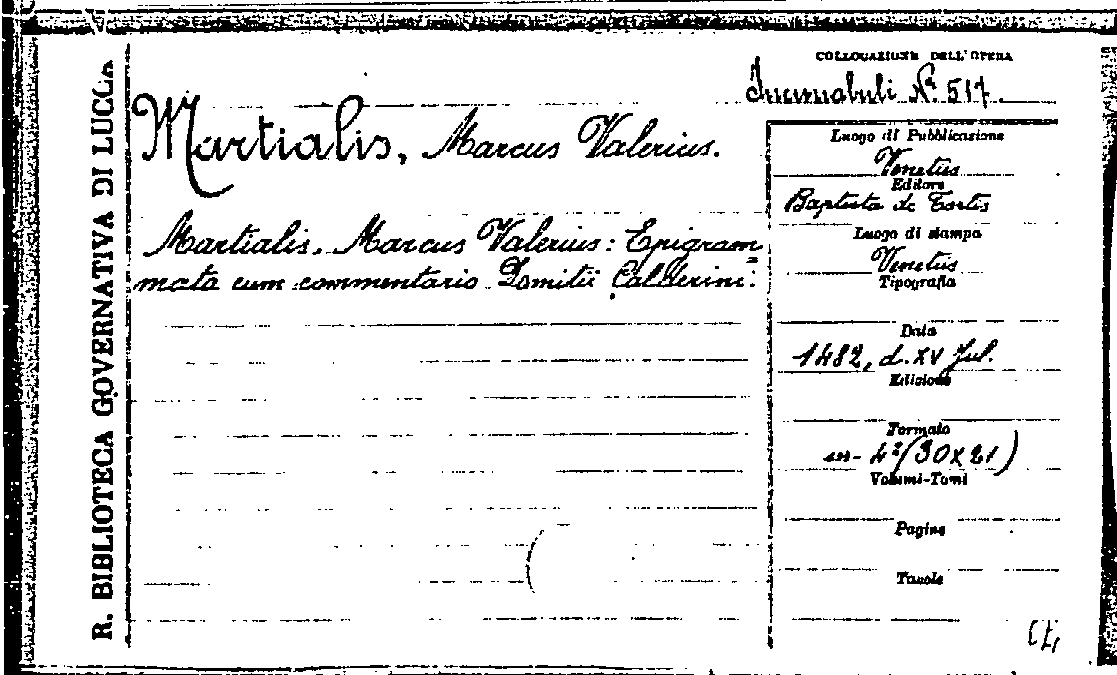 R. BIBLIOTECA GOVERNATIVA DI LUCCA
COLLOCAZIONE DELL'OPERA
Incunabuli N.º 517.
Martialis, Marcus Valerius.
Martialis. Marcus Valerius: Epigram=
mata cum commentario Domitii Calderini.
Luogo di Pubblicazione
Venetiis
Editore
Baptista de Tortis
Luogo di stampa
Venetiis
Tipografia
Data
1482, d. XV Jul.
Edizione
Formato
in- 4º (30x21)
Volumi-Tomi
Pagine
Tavole